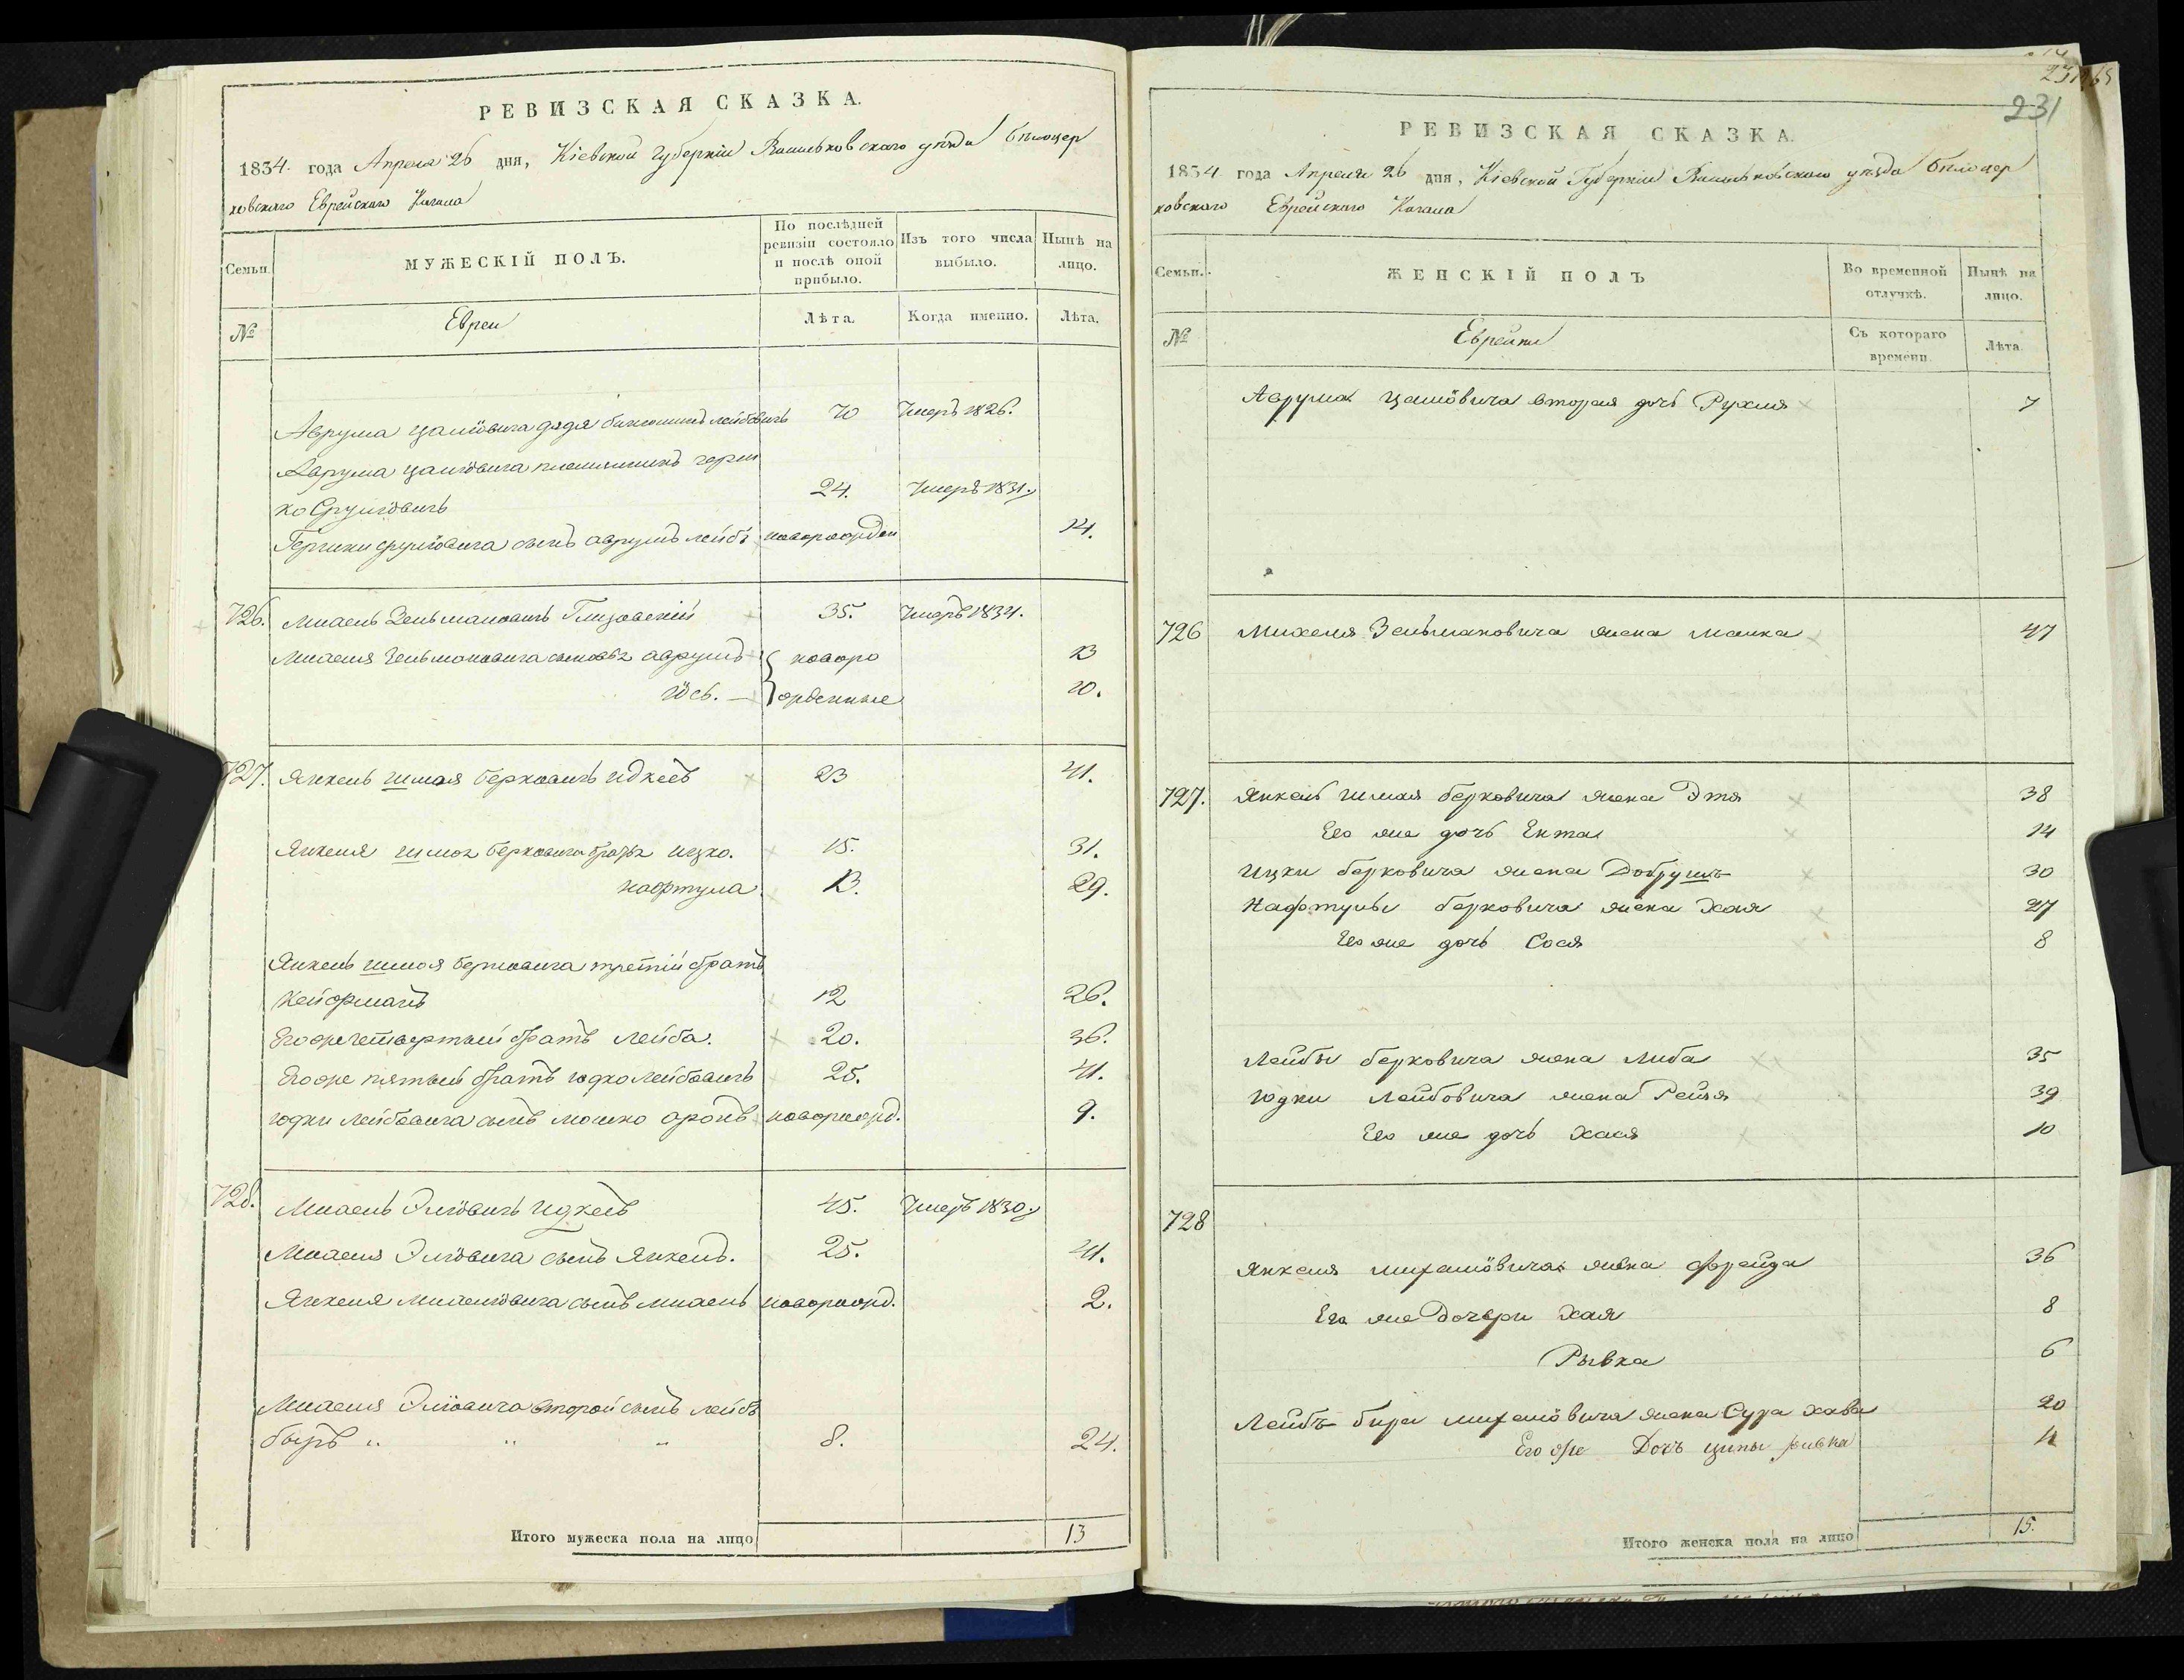 РЕВИЗСКАЯ СКАЗКА.
1834. года Апреля 26 дня, Кіевской Губерніи Васильковскаго уѣзда Бѣлоцер
ковскаго Еврейскаго Кагала
Семьи.
МУЖЕСКІЙ ПОЛЪ.
По послѣдней ревизіи состояло и послѣ оной прибыло.
Изъ того числа выбыло.
Нынѣ на лицо.
№
Евреи
Лѣта.
Когда именно.
Лѣта.
Аврума Цалiовича дядя лейбовичъ 70 Умеръ 1826.
Аврума Цалiовича племянникъ герш
ко Срулiовичъ 24. Умеръ 1831.
Гершки срулiовича сынъ аврумъ лейбъ новорожден 14.
726. Михель Зельмановичъ 35. Умеръ 1834.
Михеля Зельмановича сыновья аврумъ новоро 13
iось. — жденные 10.
727. Янкель шмая Берковичъ Идкесъ 23 41.
Янкеля шмая Берковича братья ицко. 15. 31.
нафтула 13. 29.
Янкель шмая берковича третій братъ
Кейфманъ 12 26.
Его же четвертый братъ лейба. 20. 36.
Его же пятый братъ юдко лейбовичъ 25. 41.
юдки лейбовича сынъ мошко аронъ новорожд. 9.
728. Михель Элiовичъ Идкесъ 45. Умеръ 1830.
Михеля Элiовича сынъ Янкель. 25. 41.
Янкеля михелiовича сынъ михель новорожд. 2.
Михеля Элiовича второй сынъ лейбъ
8. 24.
Итого мужеска пола на лицо 13
231
РЕВИЗСКАЯ СКАЗКА.
1834 года Апреля 26 дня, Кіевской Губерніи Васильковскаго уѣзда Бѣлоцер
ковскаго Еврейскаго Кагала
Семьи.
ЖЕНСКІЙ ПОЛЪ
Во временной отлучкѣ.
Нынѣ на лицо.
№
Еврейки
Съ котораго времени.
Лѣта.
Аврума Цалiовича вторая дочь Рухля 7
726 Михеля Зельмановича жена малка 47
727. Янкель шмая берковича жена Этя 38
Его же дочь Ента 14
Ицки берковича жена Добрушъ 30
Нафтулы берковича жена Хая 27
Его же дочь Сося 8
Лейбы берковича жена Либа 35
Юдки Лейбовича жена Рейзя 39
Его же дочь Хася 10
728
Янкеля михелiовича жена фрейда 36
Его же Дочери Хая 8
Рывка 6
Лейбъ бера михелiовича жена Сура хава 20
Его же Дочь ципы ривка 4
Итого женска пола на лицо 15.